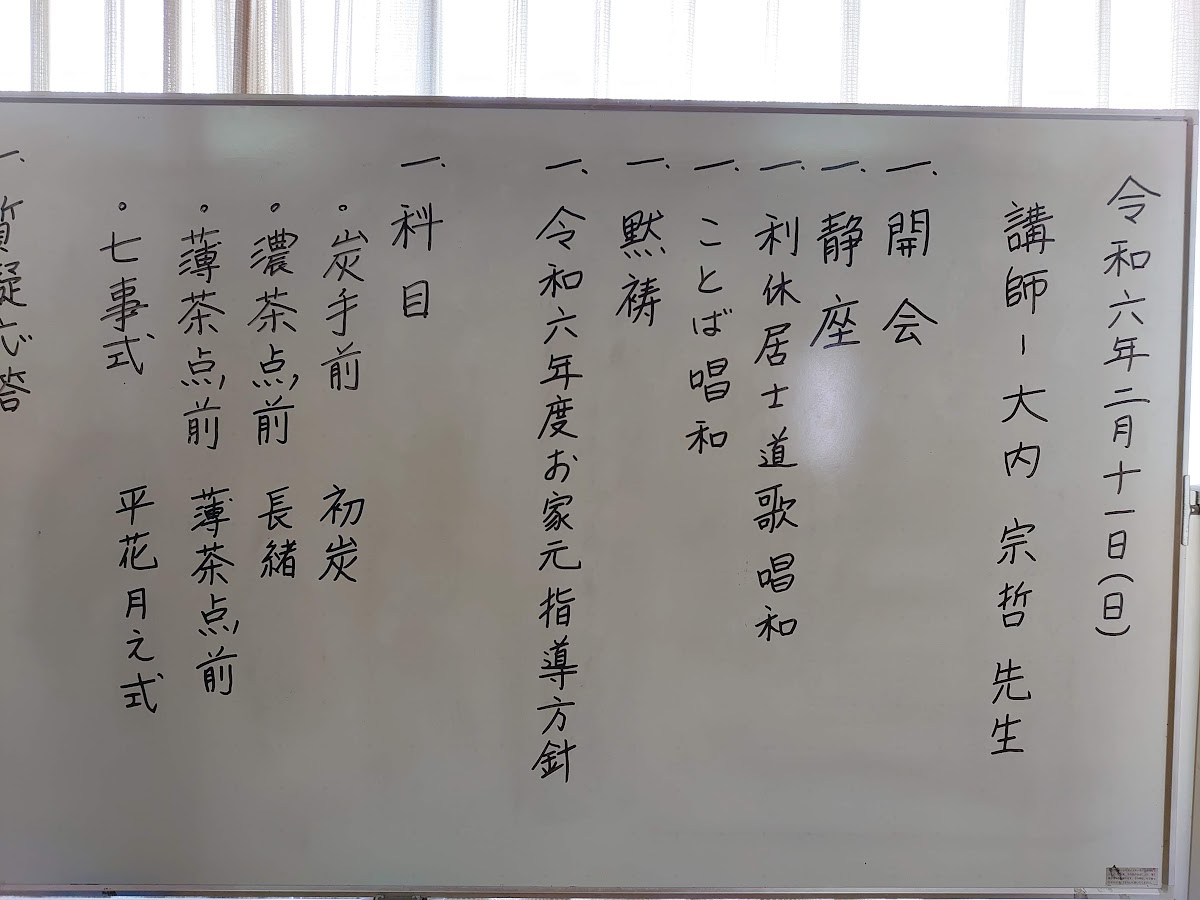 令和六年二月十一日(日)
講師ー大内 宗哲 先生
一、開会
一、静座
一、利休居士道歌唱和
一、ことば唱和
一、黙祷
一、令和六年度お家元指導方針
一、科目
。炭手前 初炭
。濃茶点前 長緒
。薄茶点前 薄茶点前
。七事式 平花月之式
一、質疑応答